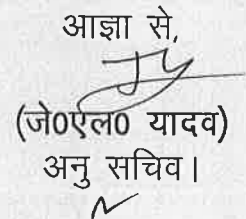 आज्ञा से,
(जे०एल० यादव)
अनु सचिव।